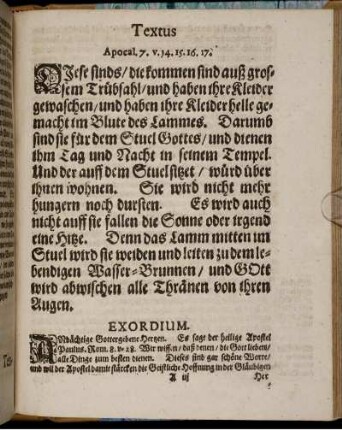 Textus
Apocal. 7. v. 14. 15. 16. 17.
Diese sinds / die kommen sind auß gros-
sem Trübsahl / und haben ihre Kleider
gewaschen / und haben ihre Kleider helle ge-
macht im Blute des Lammes. Darumb
sind sie für dem Stuel Gottes / und dienen
ihm Tag und Nacht in seinem Tempel.
Und der auff dem Stuel sitzet / würd über
ihnen wohnen. Sie wird nicht mehr
hungern noch dursten. Es wird auch
nicht auff sie fallen die Sonne oder irgend
eine Hitze. Denn das Lamm mitten im
Stuel wird sie weiden und leiten zu dem le-
bendigen Wasser-Brunnen / und GOtt
wird abwischen alle Thränen von ihren
Augen.
EXORDIUM.
ANdächtige Gottergebene Hertzen. Es sage der heilige Apostel
Paulus. Rom. 8. v. 28. Wir wissen / daß denen / die Gott lieben /
alle Dinge zum besten dienen. Dieses sind gar schöne Worte /
und wil der Apostel damit stärcken die Geistliche Hoffnung in der Gläubigen
A iij Her
Tex-